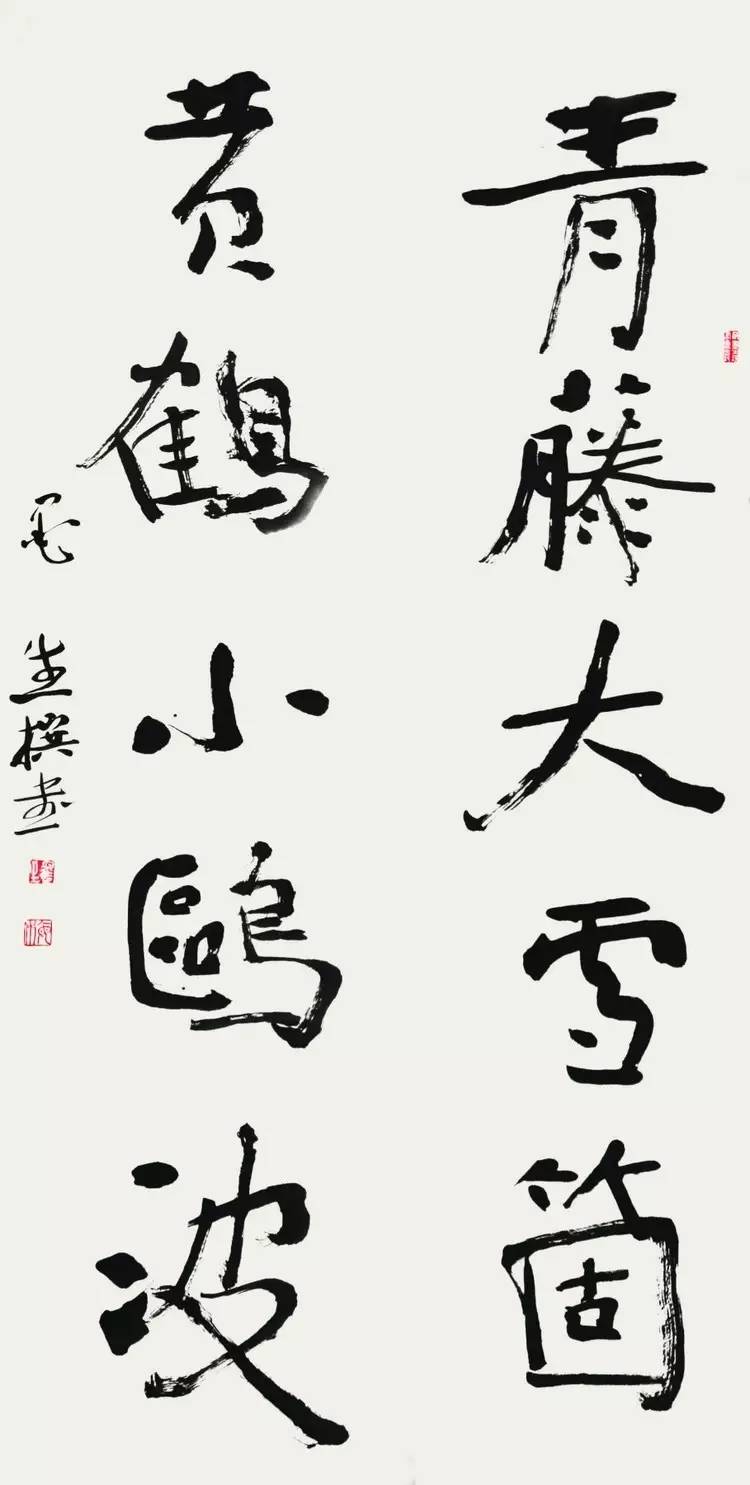 青藤大雪箇
黄鶴小鷗波
生撰書